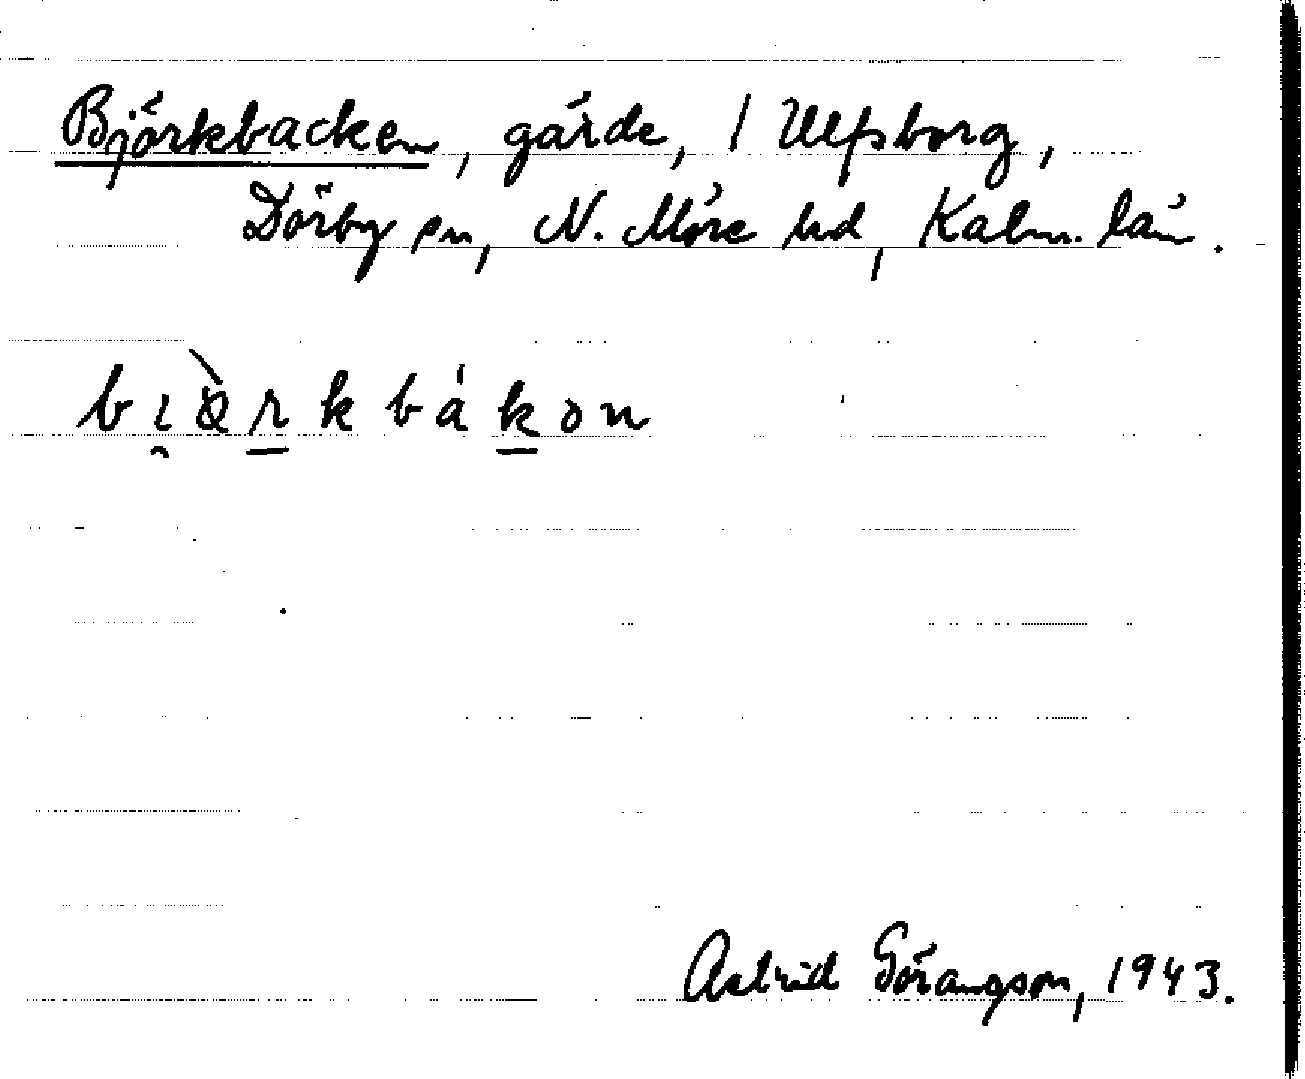 Björkbacken, gärde, / Ulfsborg,
Dörby sn, N. Möre hd, Kalm. län.
bı̯ö̀rkbákon
Astrid Görangson, 1943.